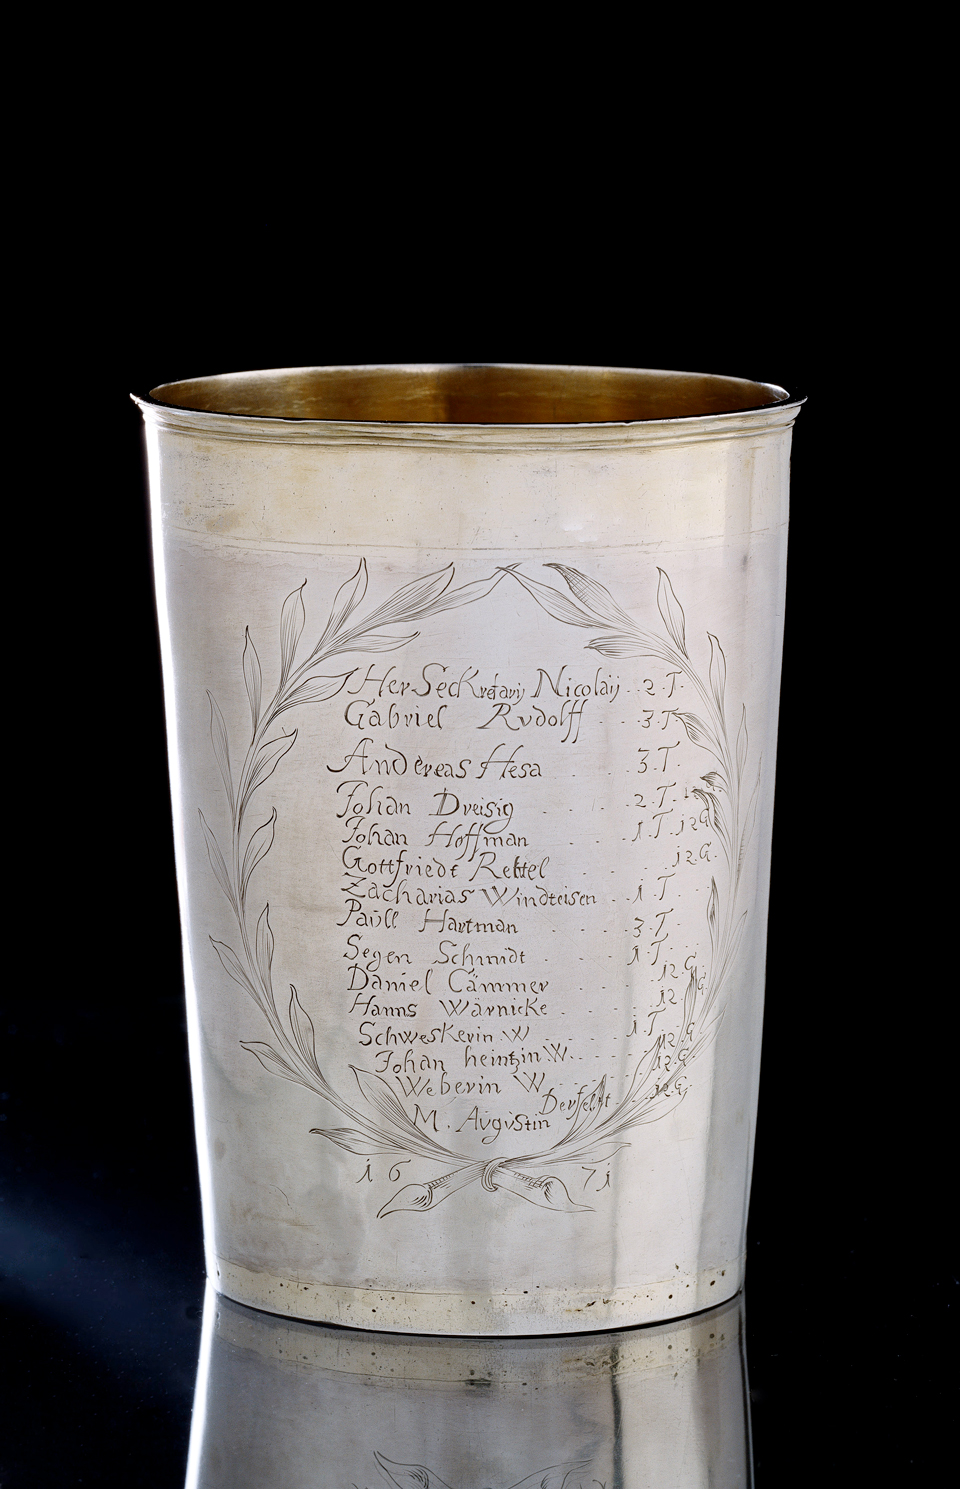 Her Seckretarij Nicolaij . . 2 . T .
Gabriel Rvdolff . . . 3 . T
Andereas Hesa . . . 3 . T .
Johan Dreisig . . . 2 . T .
Johan Hoffman . . . 1 . T . 12 G
Gottfriedt Rettel . . . 12 . G .
Zacharias Windteisen . . . 1 T . .
Paull Hartman . . . 3 . T .
Segen Schmidt . . . 1 . T . .
Daniel Cämmer . . . 12 . G .
Hanns Wärnicke . . . 12 . G
Schweskerin . W . . . 1 . T .
Johan heintzin . W . . . 12 . G
Weberin W . . . 12 . G .
M . Avgvstin . . . 12 . G .
16 71